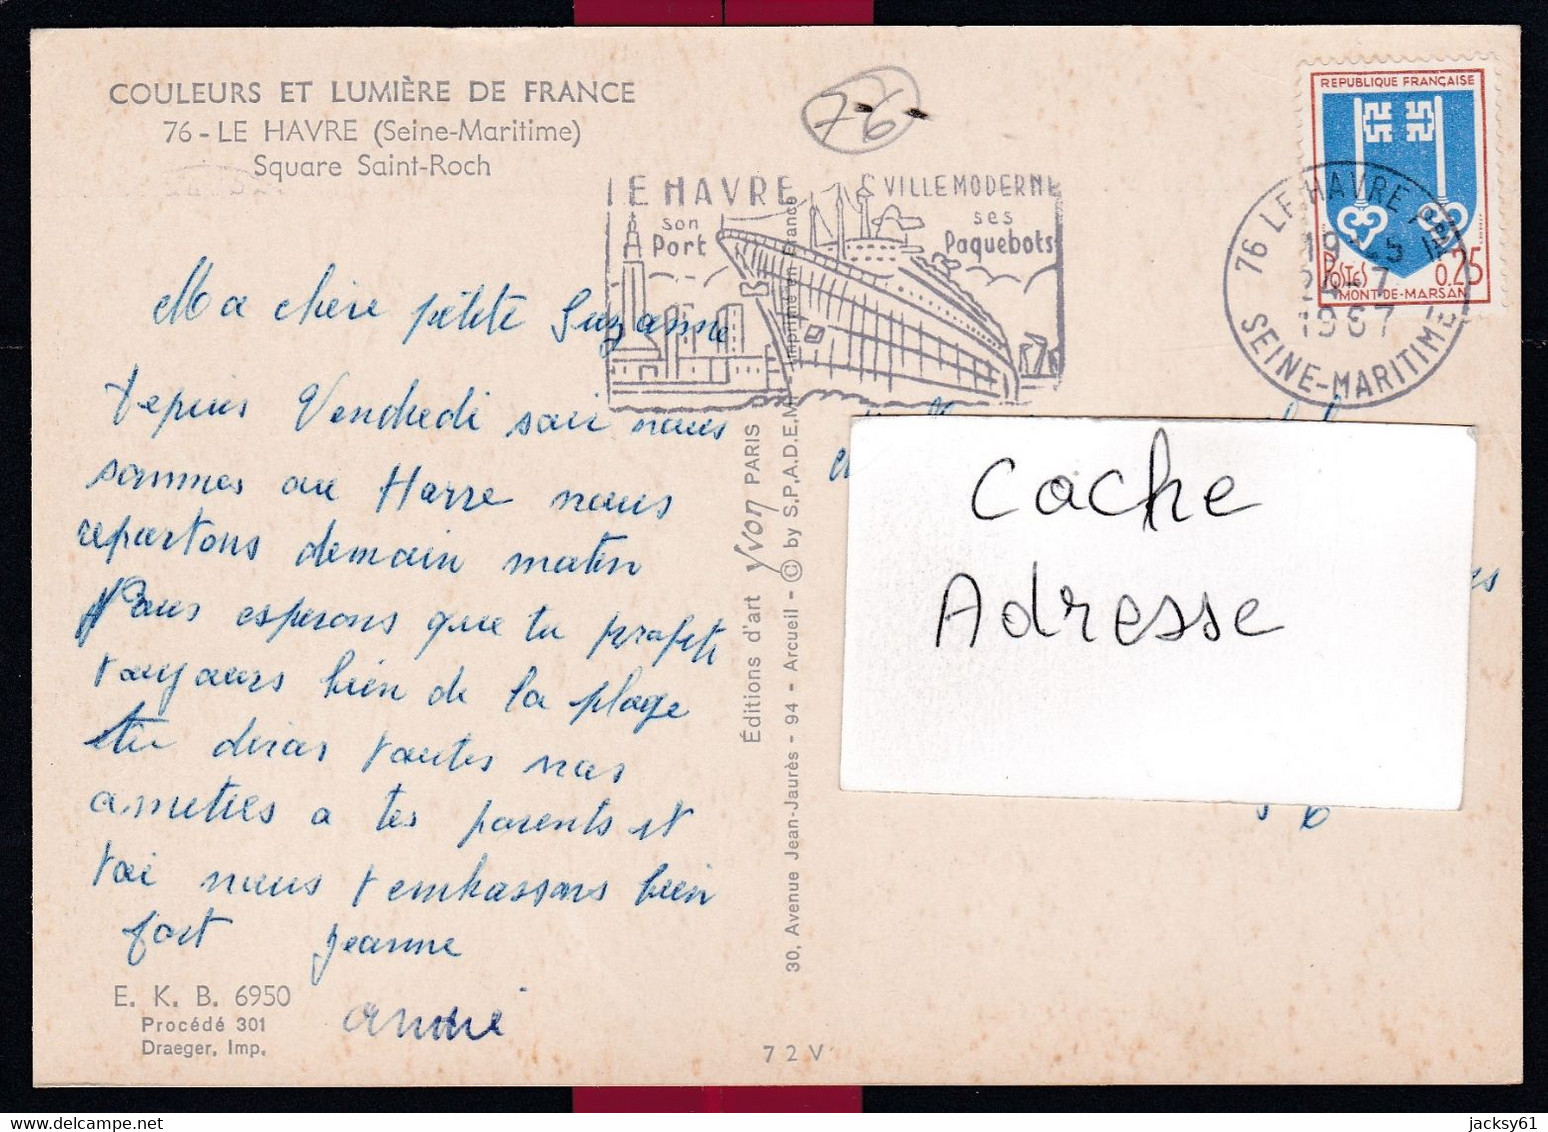 COULEURS ET LUMIÈRE DE FRANCE
76 - LE HAVRE (Seine-Maritime)
Square Saint-Roch
76
LE HAVRE
son
Port
VILLE MODERNE
ses
Paquebots
REPUBLIQUE FRANÇAISE
POSTES 0.25
MONT-DE-MARSAN
76 LE HAVRE
19-25
24-7
1967
SEINE-MARITIME
Ma chère petite Suzanne
Depuis Vendredi soir nous
sommes au Havre nous
repartons demain matin
Nous esperons que tu profite
toujours bien de la plage
tu diras toutes nos
ametiés a tes parents et
toi nous t embrassons bien
fort Jeanne
André
E. K. B. 6950
Procédé 301
Draeger, Imp.
Éditions d'art Yvon PARIS
30, Avenue Jean-Jaurès - 94 - Arcueil - © by S.P.A.D.E.M.
Imprimé en France
72V
Cache
Adresse
jacksy61